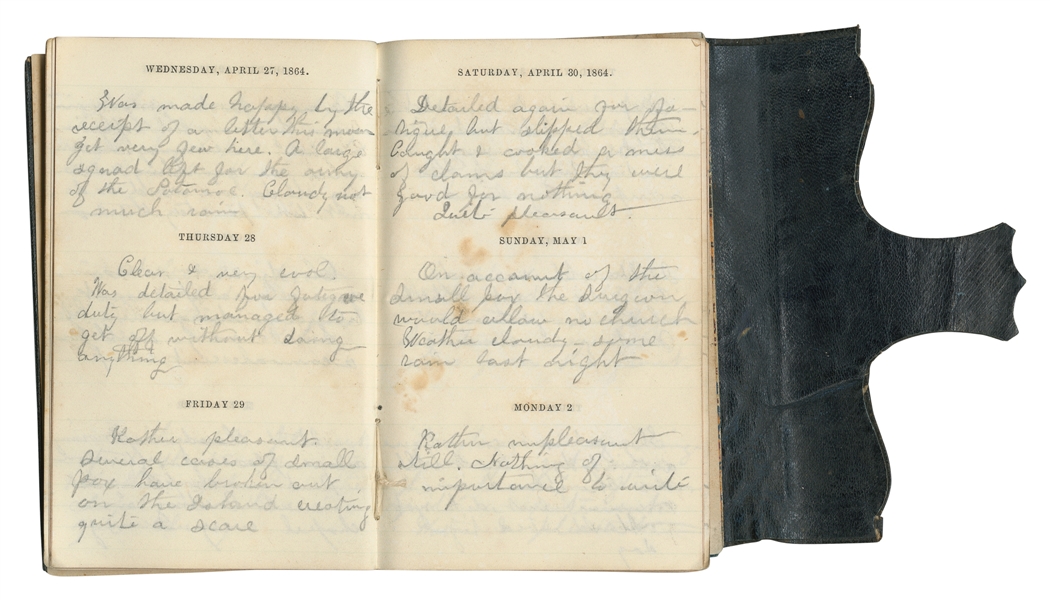 WEDNESDAY, APRIL 27, 1864.
Was made happy by the
receipt of a letter this morn
get very few here. A large
squad left for the army
of the Potomac. Cloudy not
much rain
THURSDAY 28
Clear & very cool.
Was detailed for fatigue
duty but managed to
get off without doing
anything
FRIDAY 29
Rather pleasant.
Several cases of small
pox have broken out
on the Island creating
quite a scare
SATURDAY, APRIL 30, 1864.
Detailed again for fa-
tigue, but slipped them.
Caught & cooked a mess
of clams but they were
good for nothing
Quite pleasant.
SUNDAY, MAY 1
On account of the
Small pox the Surgeon
would allow no church
Weather cloudy - some
rain last night
MONDAY 2
Rather unpleasant
still. Nothing of
importance to write